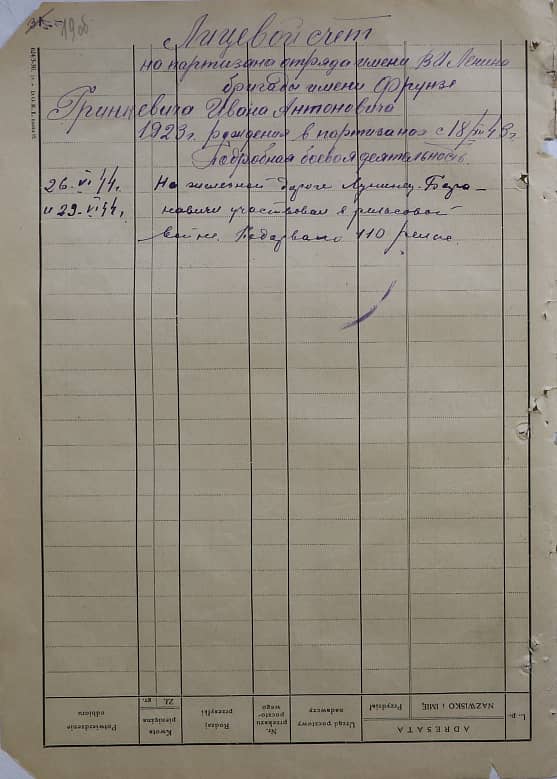 198
Лицевой счёт
на партизана отряда имени В И Ленина
бригады имени Фрунзе
Гринцевича Ивана Антоновича
1923 г. рождения в партизанах с 18/ 43 г.
Подробная боевая деятельность.
26. VI 44 г. На железной дороге Лунинец-Бара-
и 29. VI 44 г. новичи участвовал в рельсовой
войне. Подорвано 110 рельс.
L. p.
ADRESATA
NAZWISKO i IMIĘ
Przydział
Urząd pocztowy nadawczy
Nr. przekazu poczto-wego
Rodzaj przesyłki
Kwota pieniężna
Zł. gr.
Potwierdzenie odbioru